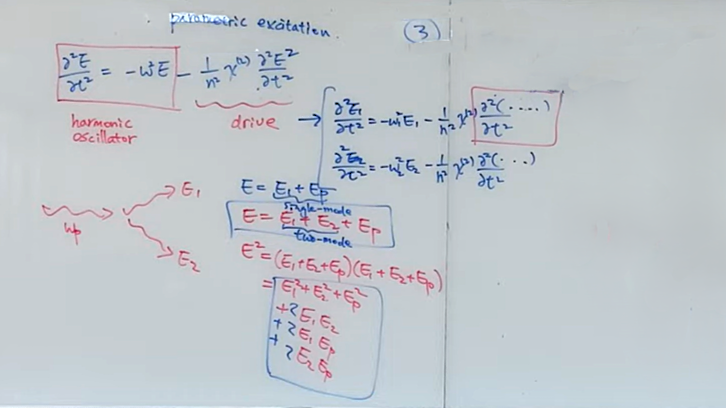 parametric excitation.
(3)
∂²E/∂t² = -ω²E - 1/n² χ⁽²⁾ ∂²E²/∂t²
harmonic oscillator
drive
→ ∂²E₁/∂t² = -ω₁²E₁ - 1/n² χ⁽²⁾ ∂²(.....)/∂t²
∂²E₂/∂t² = -ω₂²E₂ - 1/n² χ⁽²⁾ ∂²(...)/∂t²
ωp
E₁
E₂
E = E₁ + Ep
single-mode
E = E₁ + E₂ + Ep
two-mode
E² = (E₁+E₂+Ep)(E₁+E₂+Ep)
= E₁² + E₂² + Ep²
+ 2E₁E₂
+ 2E₁Ep
+ 2E₂Ep